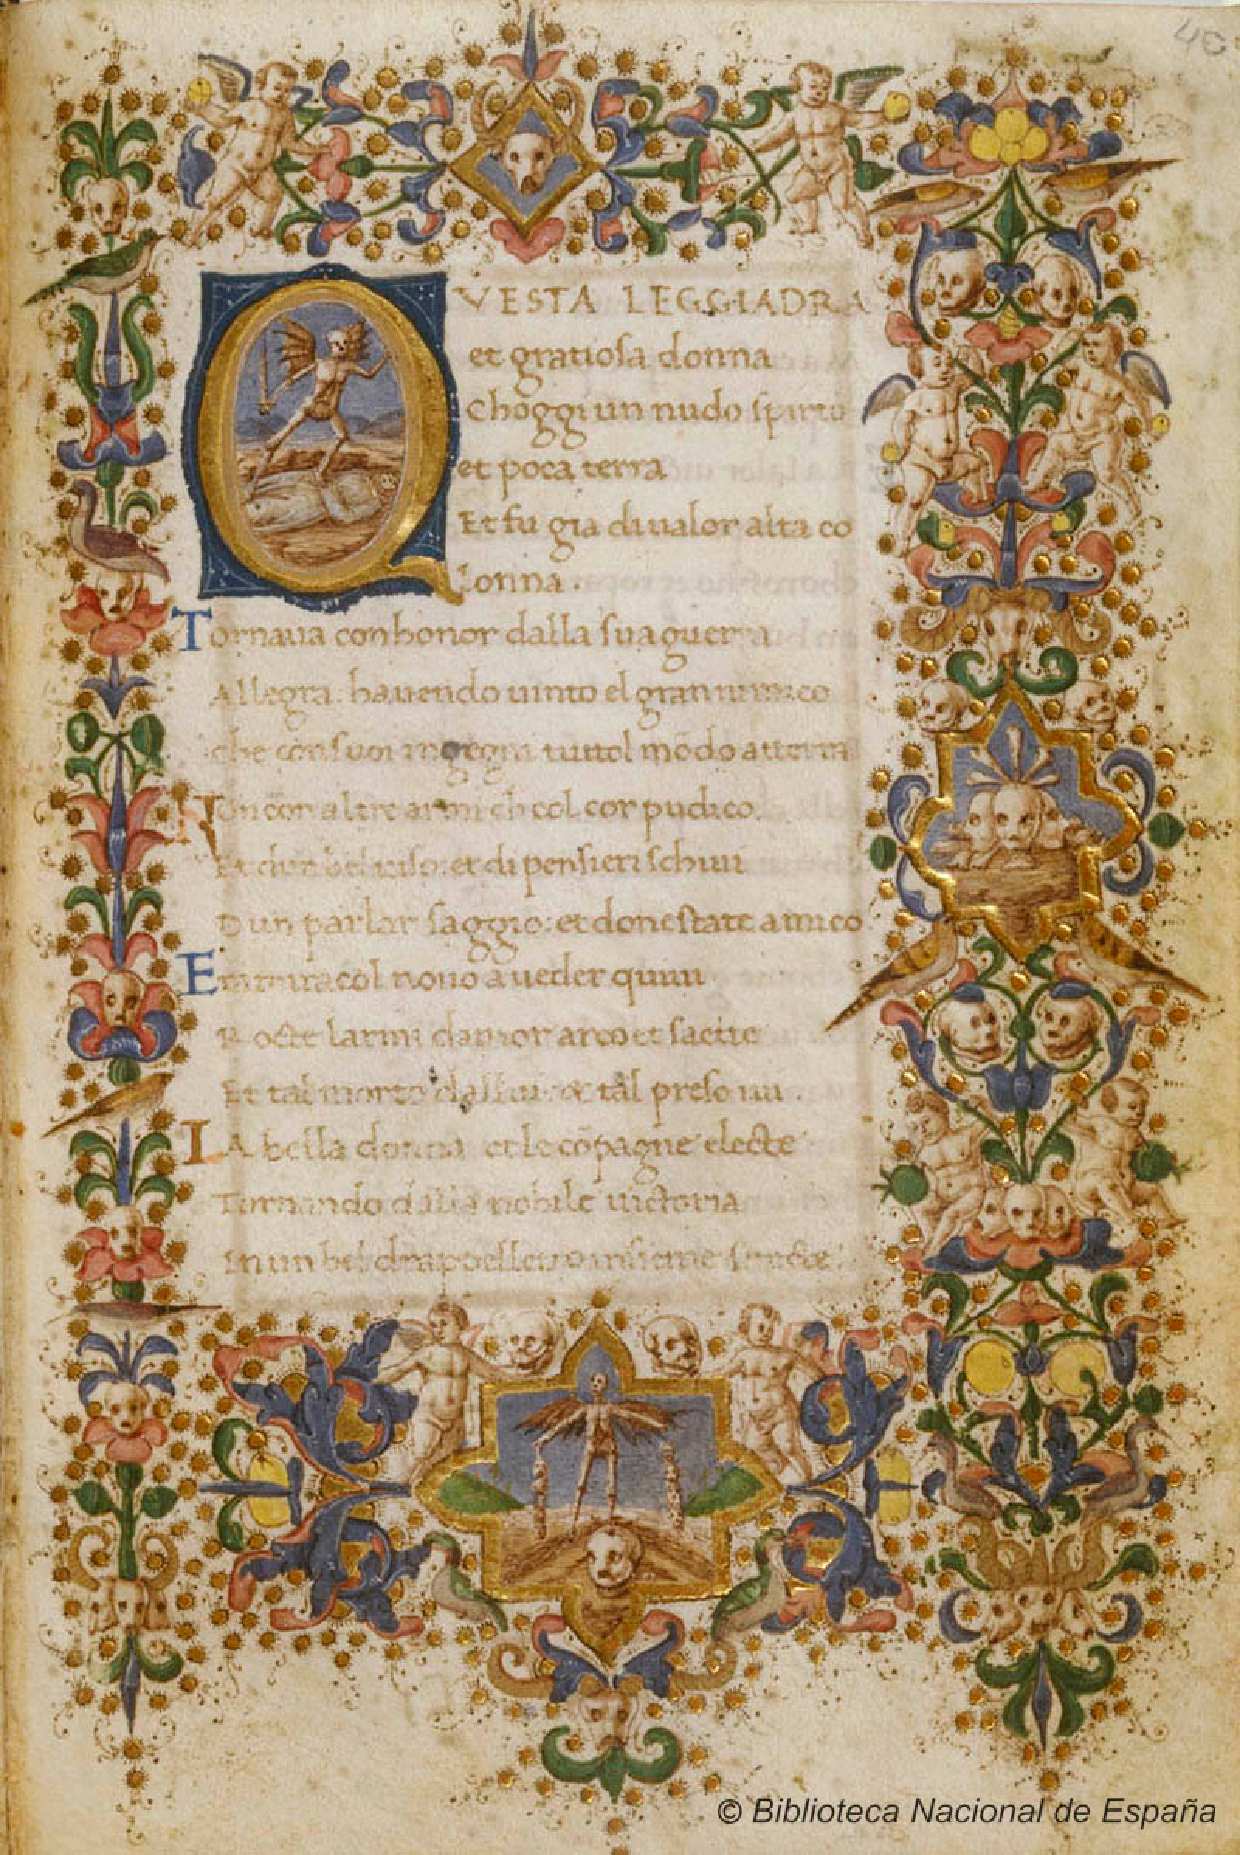 40
QVESTA LEGGIADRA
et gratiosa donna
Choggi un nudo spirto
et poca terra
Et fu gia di ualor alta co
lonna.
Tornaua con honor dalla sua guerra
Allegra. hauendo uinto el gran nimico
che con suoi ingegni tuttol mōdo atterra
Non con altre armi ch col cor pudico.
Et dun bel uiso. et di pensieri schiui
Dun parlar saggio: et donestate amico
Era miracol nouo a ueder quiui
Rocte larmi damor arco et saette
Et tal morto dallui. & tal preso iui.
La bella donna et le cōpagne electe
Tornando dalla nobile uictoria
In un bel drapelletto insieme
© Biblioteca Nacional de España